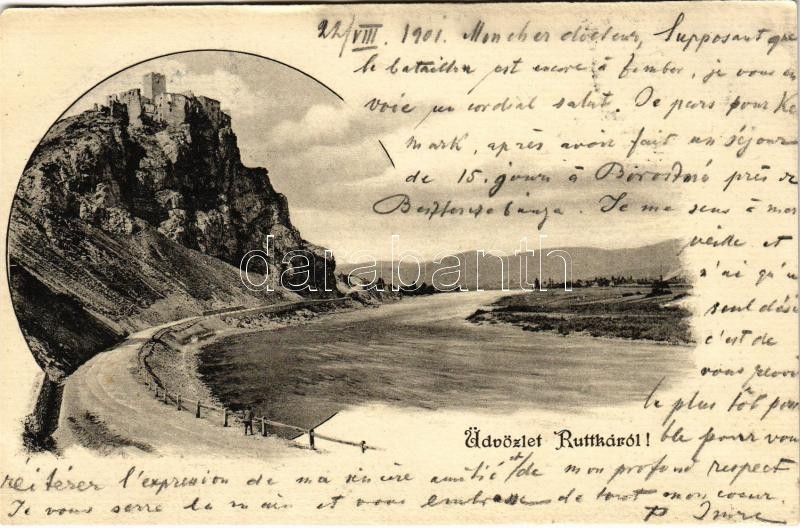 22/VIII. 1901. Mon cher docteur, Supposant que
le bataillon est encore à , je vous en
voie un cordial salut. Je pars pour Kés
mark, après avoir fait un séjour
de 15. jours à près de
Besztercebánya. Je me sens à mer
veille et
n'ai qu'u
seul dési
c'est de
vous revoir
le plus tôt possi
ble pour vous
réitérer l'expression de ma sincère amitié et de mon profond respect
Je vous serre la main et vous embrasse de tout mon coeur.
P. Imre
darabanth
Üdvözlet Ruttkáról!